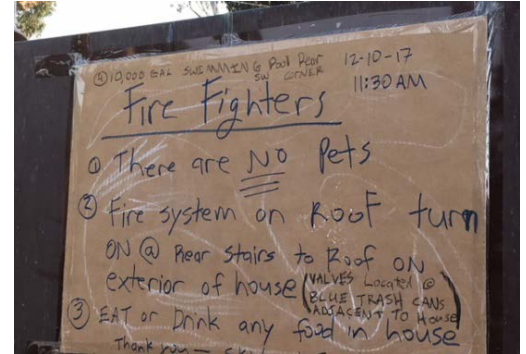 ④ 10,000 GAL SWIMMING Pool Rear 12-10-17
SW CORNER 11:30 AM
Fire Fighters
① There are NO Pets
② Fire system on Roof turn
ON @ Rear stairs to Roof ON
exterior of house (VALVES Located @
BLUE TRASH CANS
ADJACENT TO House)
③ EAT or Drink any food in house
Thank you —